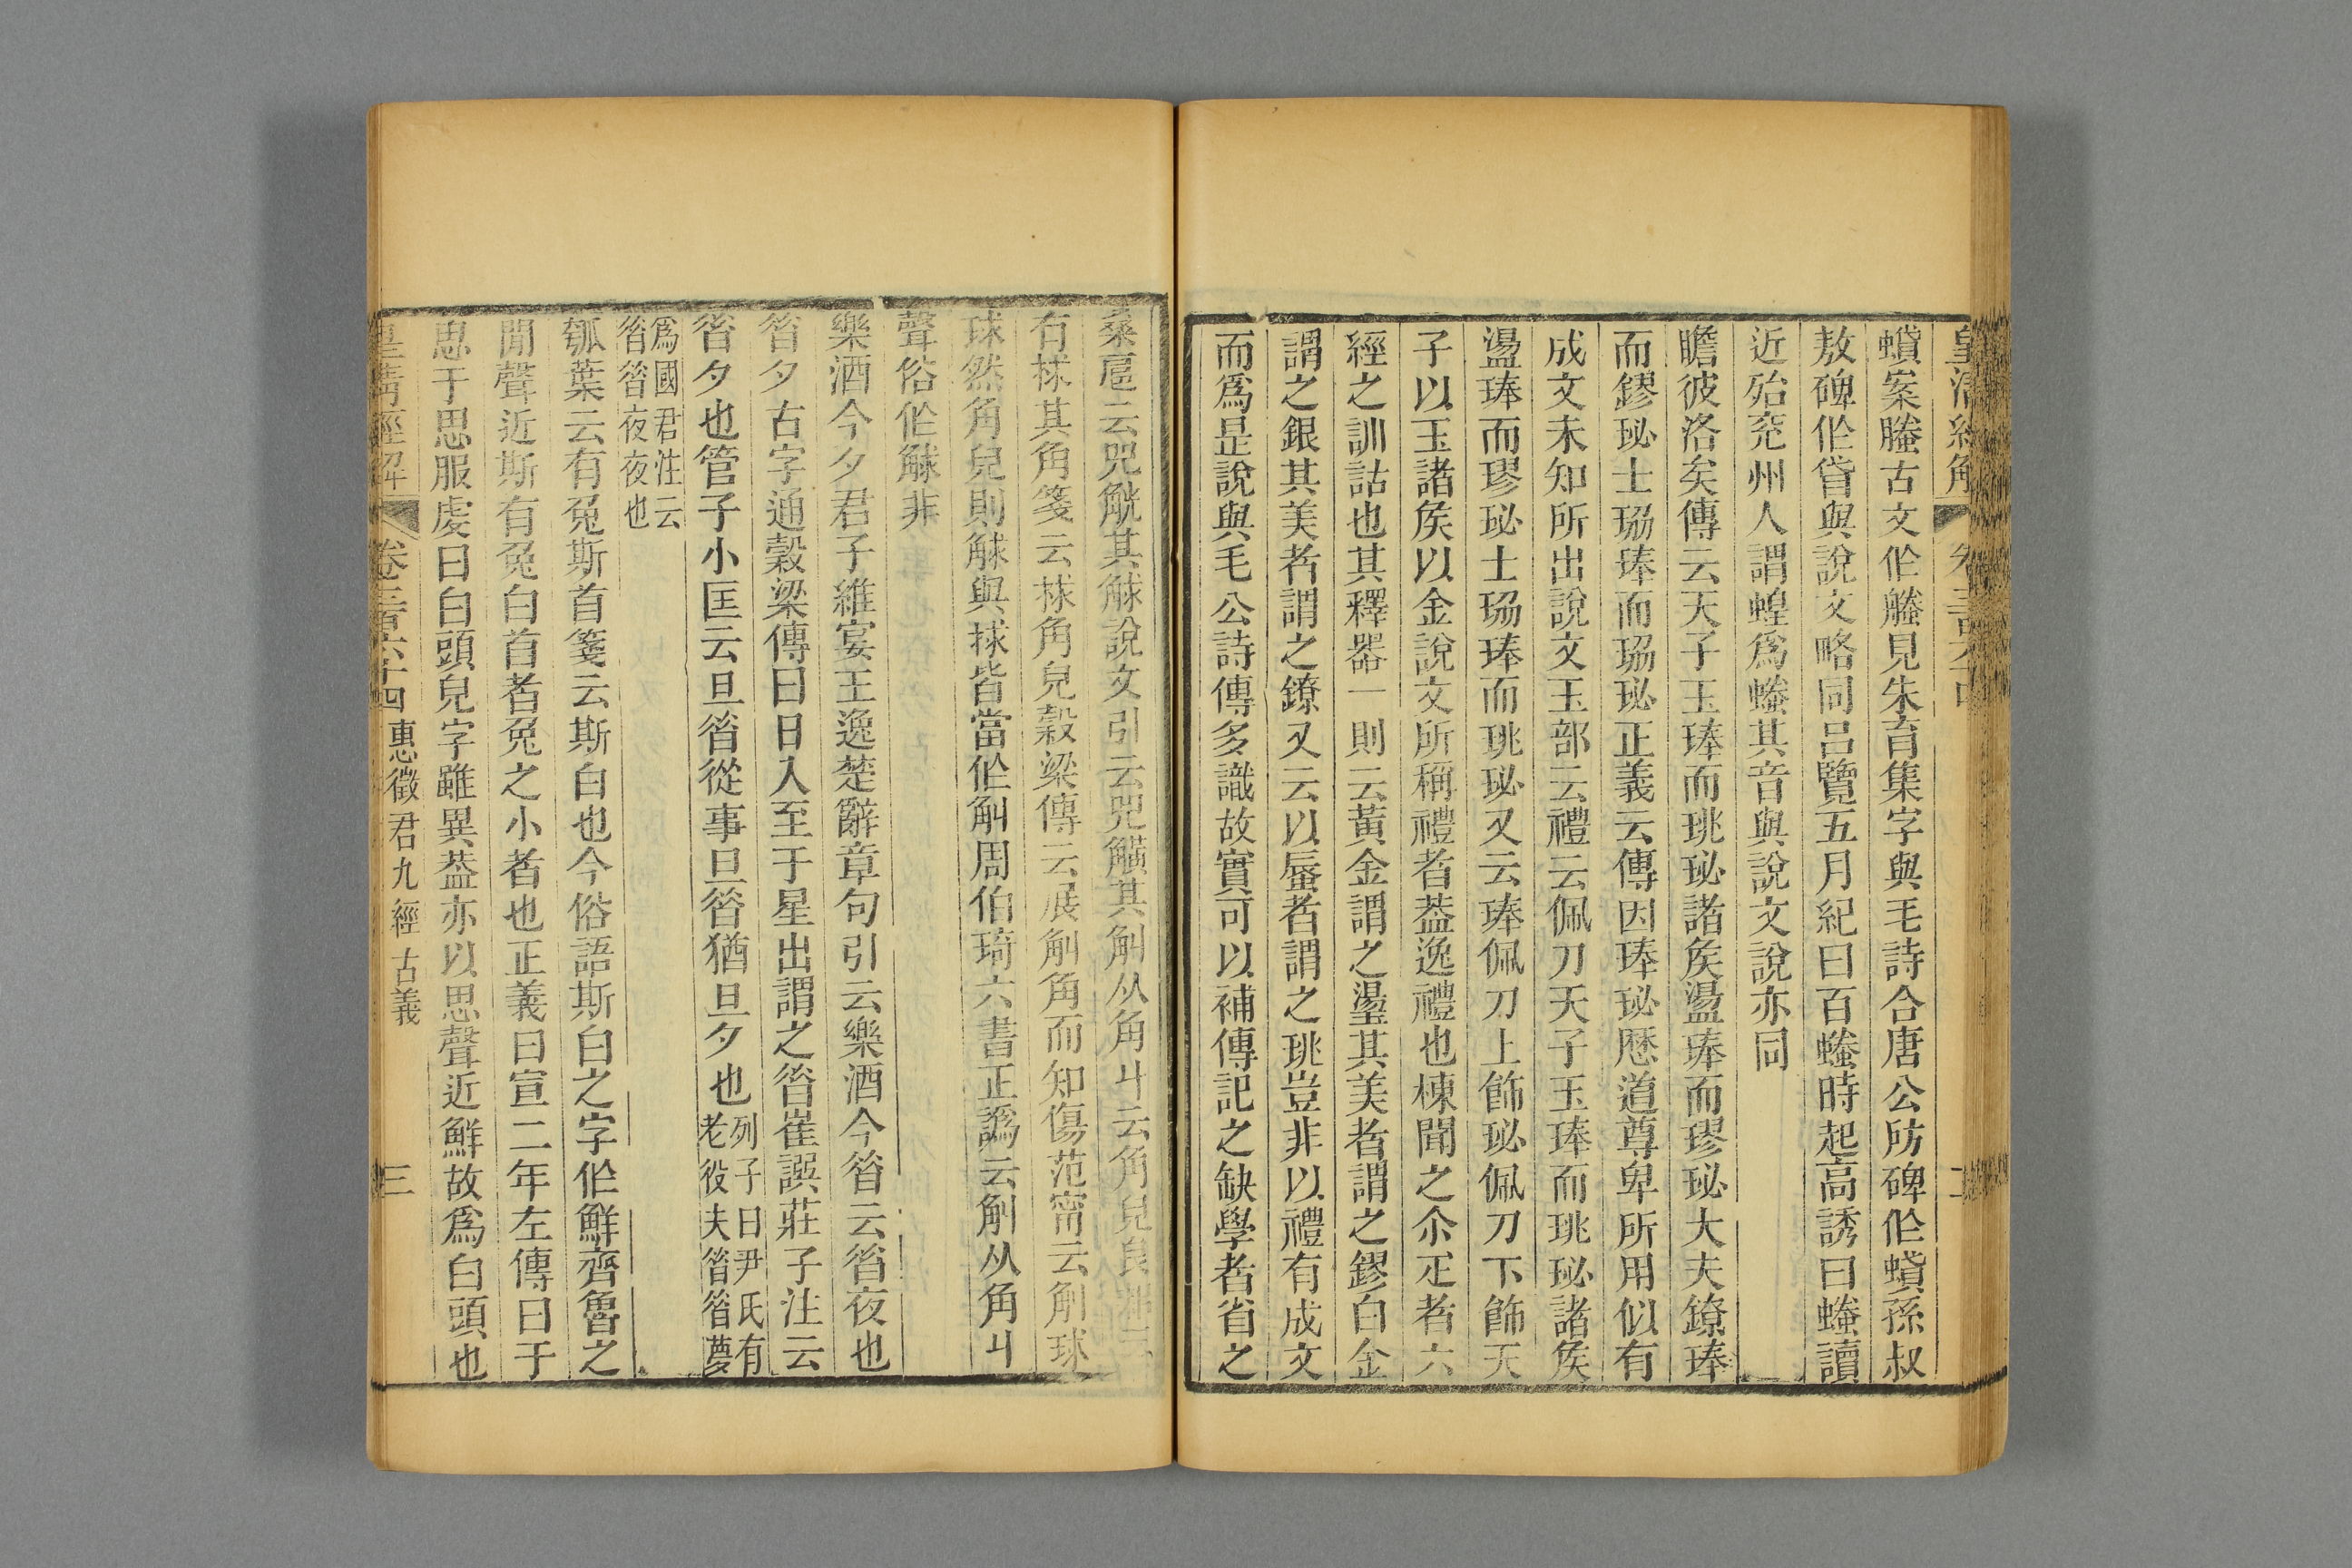 皇清經解
卷三百六十四
蟘案螣古文作䲢見朱育集字與毛詩合唐公防碑作蟘孫叔
敖碑作貣與說文略同呂覽五月紀曰百螣時起高誘曰螣讀
近殆兗州人謂蝗爲螣其音與說文說亦同
瞻彼洛矣傳云天子玉琫而珧珌諸矦璗琫而璆珌大夫鐐琫
而鏐珌士珕琫而珕珌正義云傳因琫珌歷道尊卑所用似有
成文未知所出說文玉部云禮云佩刀天子玉琫而珧珌諸矦
璗琫而璆珌士珕琫而珧珌又云琫佩刀上飾珌佩刀下飾天
子以玉諸矦以金說文所稱禮者葢逸禮也棟聞之尒疋者六
經之訓詁也其釋器一則云黃金謂之璗其美者謂之鏐白金
謂之銀其美者謂之鐐又云以蜃者謂之珧豈非以禮有成文
而爲是說與毛公詩傳多識故實可以補傳記之缺學者省之
桑扈云兕觥其觩說文引云兕觵其觓从角丩云角皃良耜云
有捄其角箋云捄角皃穀梁傳云展觓角而知傷范甯云觓球
球然角皃則觩與捄皆當作觓周伯琦六書正譌云觓从角丩
聲俗作觩非
樂酒今夕君子維宴王逸楚辭章句引云樂酒今㫺云㫺夜也
㫺夕古字通穀梁傳曰日入至于星出謂之㫺崔譔莊子注云
㫺夕也管子小匡云旦㫺從事旦㫺猶旦夕也列子曰尹氏有老役夫㫺㫺夢
爲國君注云㫺㫺夜夜也
瓠葉云有兔斯首箋云斯白也今俗語斯白之字作鮮齊魯之
閒聲近斯有兔白首者兔之小者也正義曰宣二年左傳曰于
思于思服虔曰白頭皃字雖異葢亦以思聲近鮮故爲白頭也
皇清經解
卷三百六十四
惠徵君九經古義
三